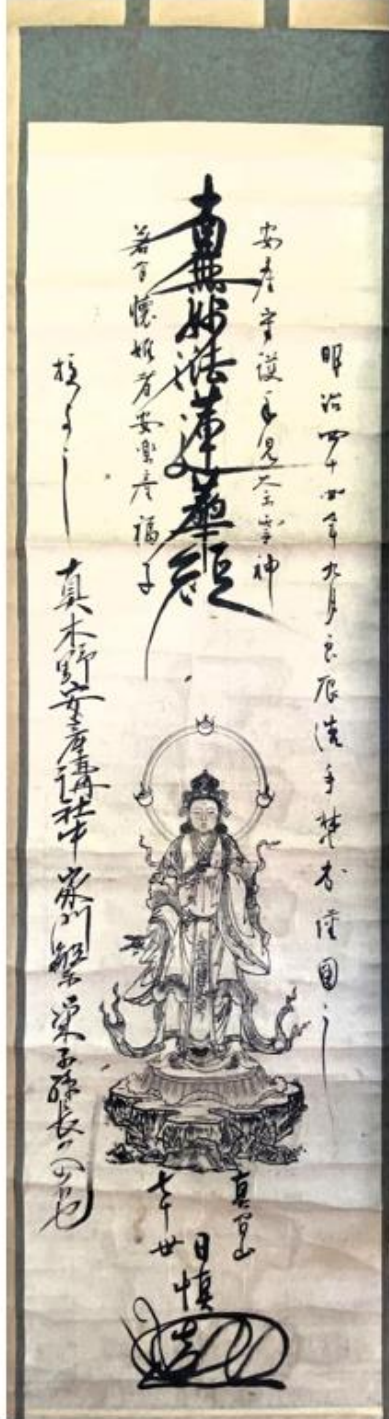 明治四十四年九月良辰洗手焚香謹圖之
安産守護手児奈霊神
南無妙法蓮華經
若有懐妊者安楽産福子
授与之
真木野安産講社中家門繁栄子孫長久
真間山
七十世
日慎